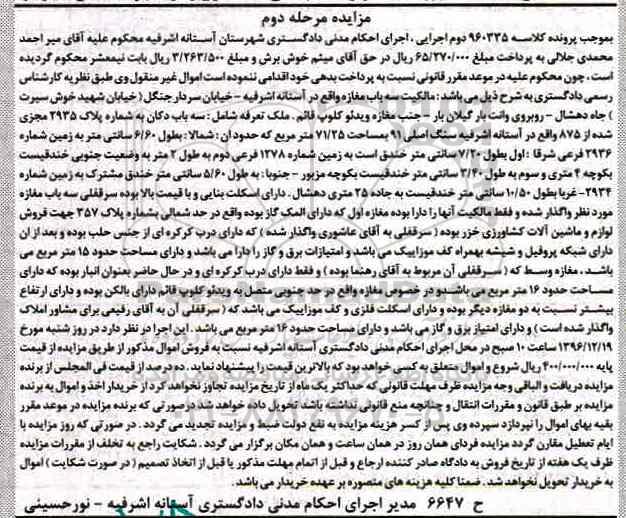 مزایده مرحله دوم
بموجب پرونده کلاسه ۹۶۰۳۳۵ دوم اجرایی ، اجرای احکام مدنی دادگستری شهرستان آستانه اشرفیه محکوم علیه آقای میر احمد
محمدی جلالی به پرداخت مبلغ ۶۵/۲۷۰/۰۰۰ ریال در حق آقای میثم خوش برش و مبلغ ۳/۲۶۳/۵۰۰ ریال بابت نیمعشر محکوم گردیده
است ، چون محکوم علیه در موعد مقرر قانونی نسبت به پرداخت بدهی خود اقدامی ننموده است اموال غیر منقول وی طبق نظریه کارشناس
رسمی دادگستری به شرح ذیل می باشد : مالکیت سه باب مغازه واقع در آستانه اشرفیه - خیابان سردار جنگل ( خیابان شهید خوش سیرت
) جاه دهشال - روبروی وانت بار گیلان بار - جنب مغازه ویدئو کلوپ قائم . ملک تعرفه شامل : سه باب دکان به شماره پلاک ۲۹۳۵ مجزی
شده از ۸۷۵ واقع در آستانه اشرفیه سنگ اصلی ۹۱ بمساحت ۷۱/۲۵ متر مربع که حدود آن : شمالا : بطول ۶/۶۰ سانتی متر به زمین شماره
۲۹۳۶ فرعی شرقا : اول بطول ۷/۲۰ سانتی متر خندق است به زمین شماره ۱۲۷۸ فرعی دوم به طول ۲ متر به وضعیت جنوبی خندقیست
بکوچه ۴ متری و سوم به طول ۳/۴۰ سانتی متر خندقیست بکوچه مزبور - جنوبا : به طول ۵/۶۰ سانتی متر خندق مشترک به زمین شماره
۲۹۳۴- غربا بطول ۱۰/۵۰ سانتی متر خندقیست به جاده ۲۵ متری دهشال . دارای اسکلت بنایی و با قیمت بالا بوده سرقفلی سه باب مغازه
مورد نظر واگذار شده و فقط مالکیت آنها را دارا بوده مغازه اول که دارای المک گاز بوده واقع در حد شمالی بشماره پلاک ۳۵۷ جهت فروش
لوازم و ماشین آلات کشاورزی خزر بوده ( سرقفلی به آقای عاشوری واگذار شده ) که دارای درب کرکره ای از جنس حلب بوده و بعد از ان
دارای شبکه پروفیل و شیشه بهمراه کف موزاییک می باشد و امتیازات برق و گاز را دارا می باشد و دارای مساحت حدود ۱۵ متر مربع می
باشد . مغازه وسط که ( سرقفلی آن مربوط به آقای رهنما بوده ) و فقط دارای درب کرکره ای و در حال حاضر بعنوان انبار بوده که دارای
مساحت حدود ۱۶ متر مربع می باشدو در خصوص مغازه واقع در حد جنوبی متصل به ویدئو کلوپ قائم دارای بالکن بوده و دارای ارتفاع
بیشتر نسبت به دو مغازه دیگر بوده و دارای اسکلت فلزی و کف موزاییک می باشد که ( سرقفلی آن به آقای رفیعی برای مشاور املاک
واگذار شده است ) و دارای امتیاز برق و گاز می باشد و دارای مساحت حدود ۱۶ متر مربع می باشد . این اجرا در نظر دارد در روز شنبه مورخ
۱۳۹۶/۱۲/۱۹ ساعت ۱۰ صبح در محل اجرای احکام مدنی دادگستری آستانه اشرفیه نسبت به فروش اموال مذکور از طریق مزایده از قیمت
پایه ۴۰۰/۰۰۰/۰۰۰ ریال شروع و اموال متعلق به کسی خواهد بود که بالاترین قیمت را پیشنهاد نماید. ده درصد از قیمت فی المجلس از برنده
مزایده دریافت و الباقی وجه مزایده ظرف مهلت قانونی که حداکثر یک ماه از تاریخ مزایده تجاوز نخواهد کرد از خریدار اخذ و اموال به برنده
مزایده بر طبق قانون و مقررات انتقال و چنانچه منع قانونی نداشت باشد تحویل داده خواهد شد درصورتی که برنده مزایده در موعد مقرر
بقیه بهای اموال را نپردازد سپرده وی پس از کسر هزینه مزایده به نفع دولت ضبط و مزایده تجدید می گردد . در صورتی که روز مزایده با
ایام تعطیل مقارن گردد مزایده فردای همان روز در همان ساعت و همان مکان برگزار می گردد . شکایت راجع به تخلف از مقررات مزایده
ظرف یک هفته از تاریخ فروش به دادگاه صادر کننده ارجاع و قبل از اتمام مهلت مذکور یا قبل از اتخاذ تصمیم ( در صورت شکایت ) اموال
به خریدار تحویل نخواهد شد . ضمنا کلیه هزینه های متصوره بر عهده خریدار می باشد .
ح ۶۶۴۷ مدیر اجرای احکام مدنی دادگستری آستانه اشرفیه - نورحسینی